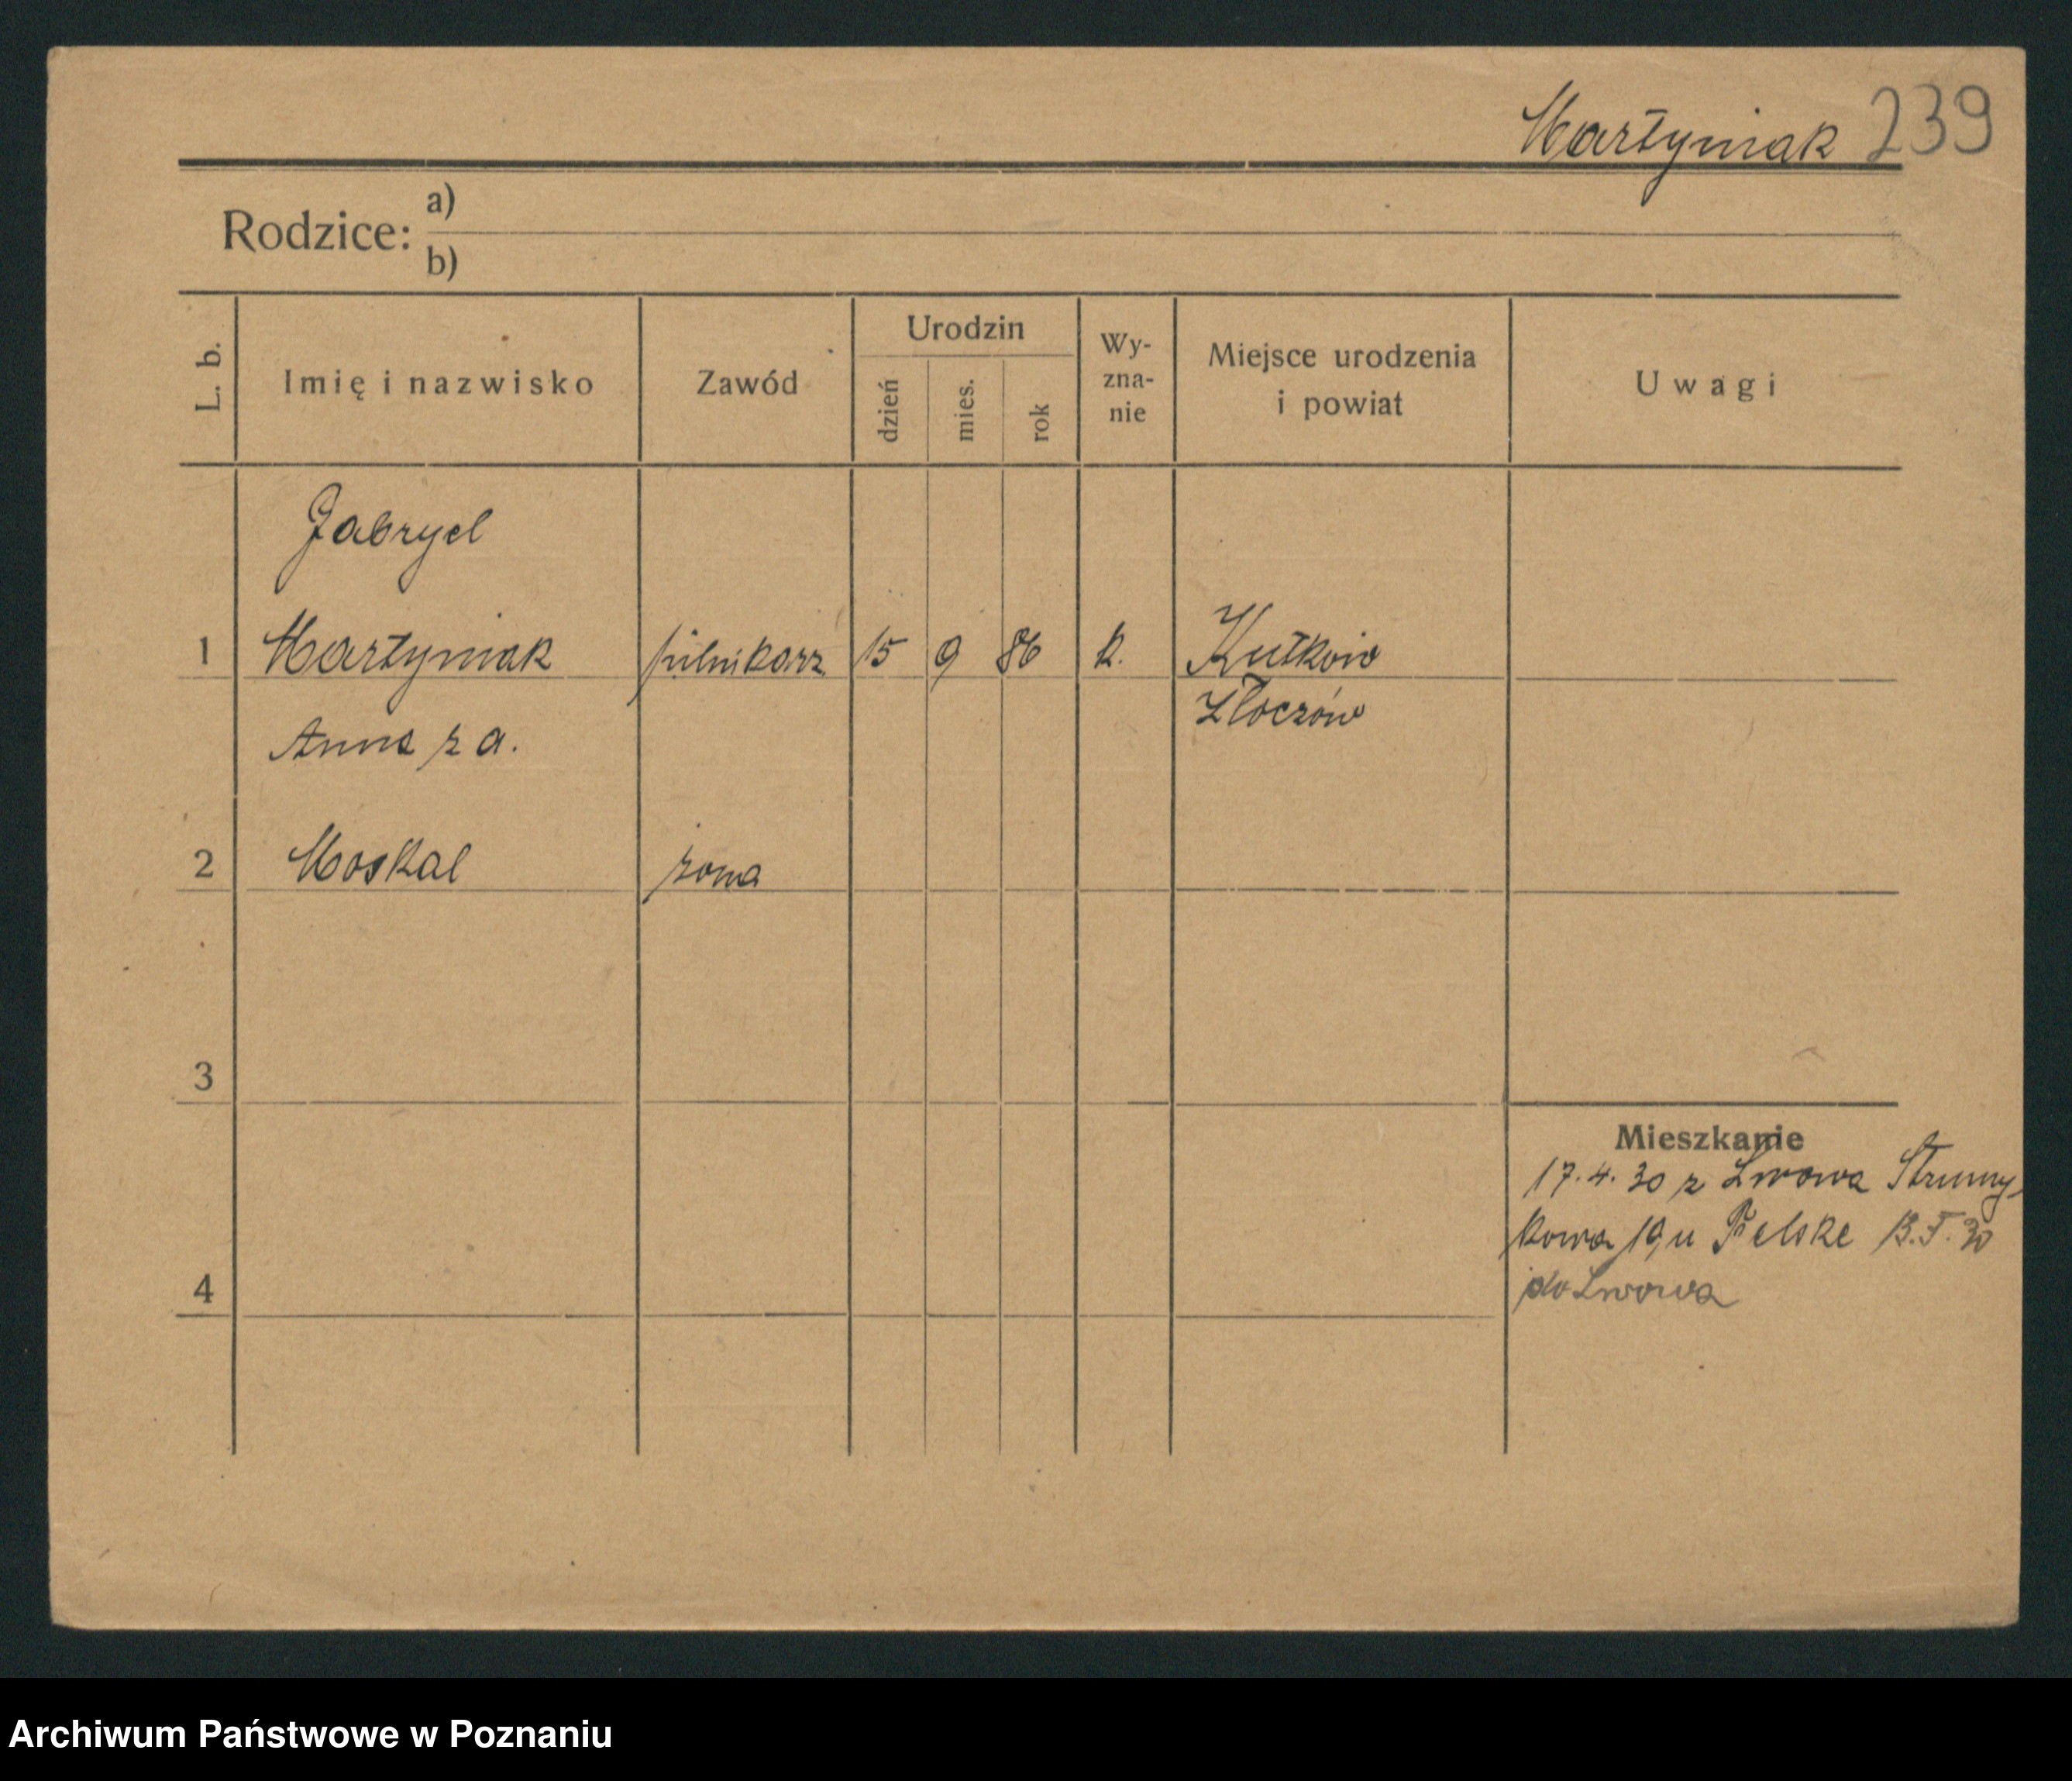 Martyniak 239
Rodzice: a)
b)
L. b.
Imię i nazwisko
Zawód
Urodzin
dzień
mies.
rok
Wy-
zna-
nie
Miejsce urodzenia
i powiat
Uwagi
Gabryel
1 Martyniak pilnikarz 15 9 86 k. Kutkow
Złoczów
Anna z a.
2 Moskal żona
3
Mieszkanie
17.4.30 z Lwowa Strumy-
kowa 19, u 30
do Lwowa
4
Archiwum Państwowe w Poznaniu